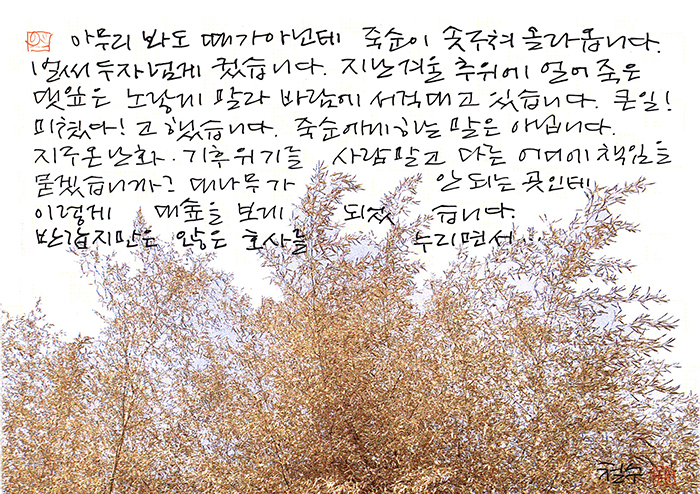 아무리 봐도 때가 아닌데 죽순이 솟구쳐 올라옵니다.
벌써 두자 넘게 컸습니다. 지난 겨울 추위에 얼어 죽은
댓잎은 노랗게 말라 바람에 서걱대고 있습니다. 큰일!
미쳤다! 고 했습니다. 죽순에게 하는 말은 아닙니다.
지구온난화·기후위기를 사람말고 다른 어디에 책임을
묻겠습니까? 대나무가 안 되는 곳인데
이렇게 대숲을 보게 되었습니다.
반갑지만은 않은 호사를 누리면서…
철수